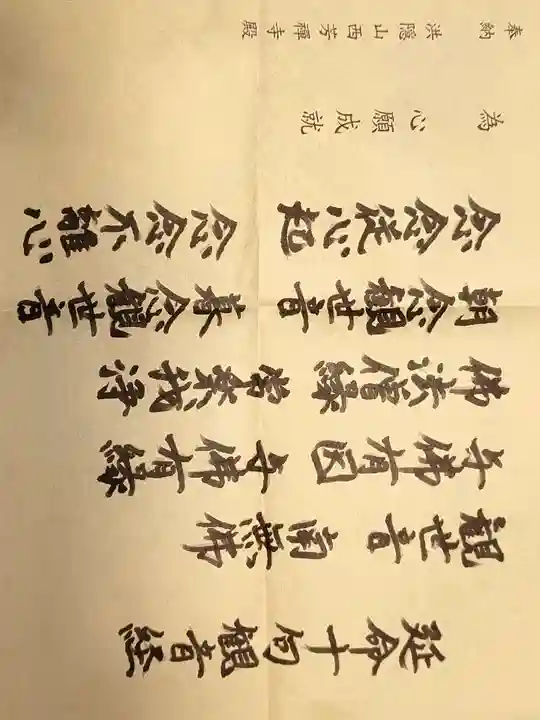 延命十句観音経
観世音 南無佛
与佛有因 与佛有縁
佛法僧縁 常楽我浄
朝念観世音 暮念観世音
念念従心起 念念不離心
為 心願成就
奉納 洪隠山西芳禪寺殿